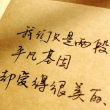 我们只是两段
平凡基因
却爱得很美丽